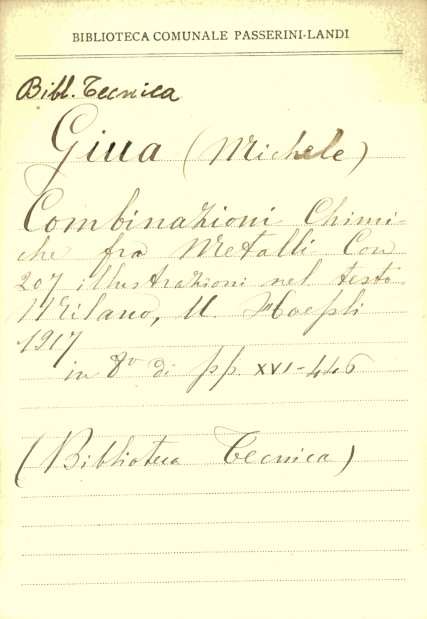 BIBLIOTECA COMUNALE PASSERINI-LANDI
Bibl. Tecnica
Giua (Michele)
Combinazioni Chimi-
che fra Metalli. Con
207 illustrazioni nel testo
Milano, U. Hoepli
1917
in 8º di pp. XVI-446
(Biblioteca Tecnica)